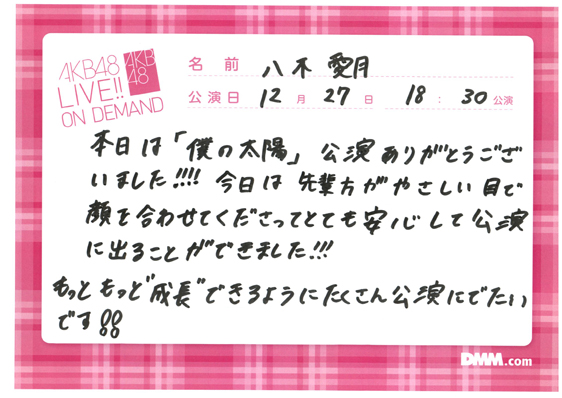 AKB48
LIVE!!
ON DEMAND
AKB
48
名 前 八木 愛月
公演日 12 月 27 日 18 : 30 公演
本日は「僕の太陽」公演ありがとうござ
いました!!!! 今日は先輩方がやさしい目で
顔を合わせてくださってとても安心して公演
に出ることができました!!!
もっともっと"成長"できるようにたくさん公演にでたい
です!!
DMM.com